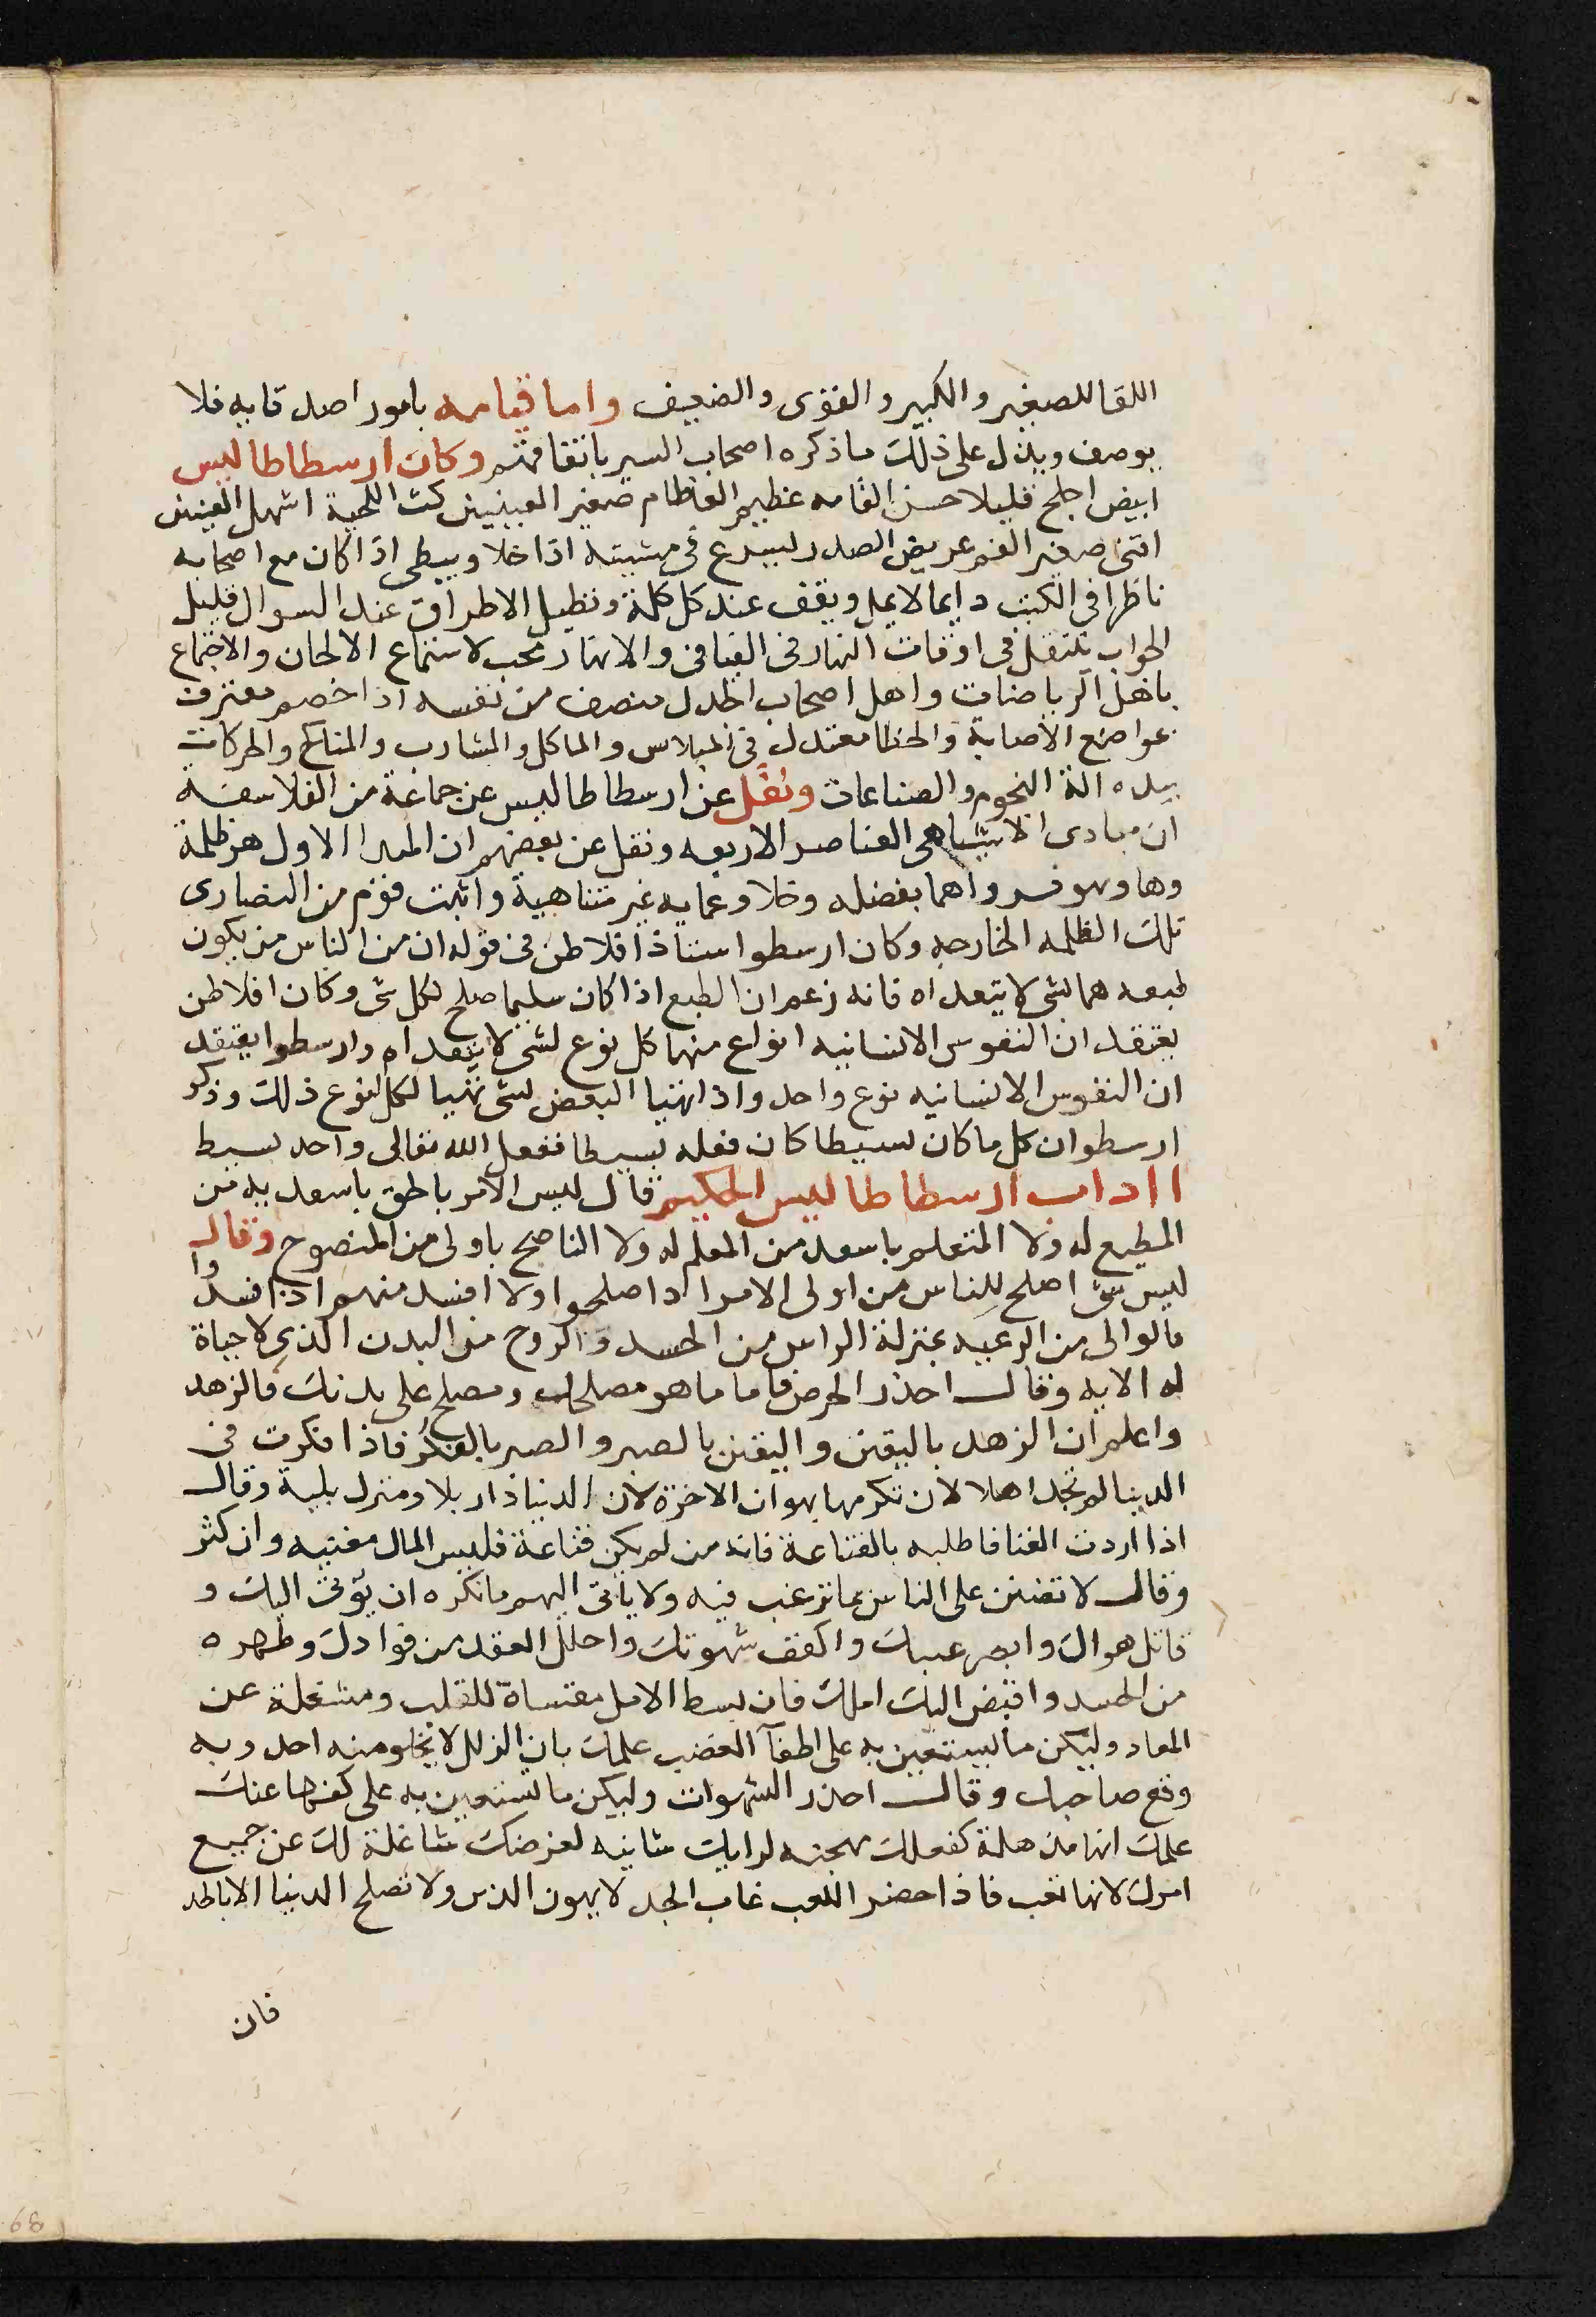 اللقا للصغير والكبير والقوى والضعيف واما قيامه بامور اصدقايه فلا
يوصف ويدل على ذلك ما ذكره اصحاب السير باتفاقهم وكان ارسطاطاليس
ابيض اجلح قليلا حسن القامه عظيم العظام صغير العينين كث اللحية اشهل العينين
اقنى صغير الفم عريض الصدر ليسرع فى مشيته اذا خلا ويبطى اذا كان مع اصحابه
ناظرا فى الكتب دايما لا يمل ويقف عند كل كلمة ويطيل الاطراق عند السوال قليل
الجواب يتنقل فى اوقات النهار فى الفيافى والانهار محب لاستماع الالحان والاجتماع
باهل الرياضات واهل اصحاب الجدل منصف من نفسه اذا خصم معترف
بمواضع الاصابة والخطا معتدل فى الملابس والماكل والمشارب والمناكح والحركات
بيده الة النجوم والصناعات ونقل عن ارسطاطاليس عن جماعة من الفلاسفة
ان مبادى الاشياء هى العناصر الاربعه ونقل عن بعضهم ان المبدا الاول هو ظلمة
وهاويه وخلا وعمايه غير متناهية واثبت قوم من النصارى
تلك الظلمه الخارجه وكان ارسطوا استاذا فلاطن فى قوله ان من الناس من يكون
طبعه مهيا لشى لا يتعداه فانه زعم ان الطبع اذا كان سليما صلح لكل شى وكان افلاطن
يعتقد ان النفوس الانسانيه انواع منها كل نوع لشى لا يتعداه وارسطوا يعتقد
ان النفوس الانسانيه نوع واحد واذا تهيا البعض لشى تهيا لكل النوع ذلك وذكر
ارسطوان كل ما كان بسيطا كان فعله بسيطا ففعل الله تعالى واحد بسيط
ااداب ارسطاطاليس الحكيم قال ليس الامر بالحق باسعد به من
المطيع له ولا المتعلم باسعد من المعلم له ولا الناصح باولى من المنصوح وقال
ليس شى اصلح للناس من اولى الامر اذا صلحوا ولا افسد منهم اذا افسدوا
فالوالى من الرعيه بمنزلة الراس من الجسد والروح من البدن الذى لا حياة
له الا به وقال احذر الحرص فاما ما هو مصلحك ومصلح على يدنك فالزهد
واعلم ان الزهد باليقين واليقين بالصبر والصبر بالفكر فاذا فكرت فى
الدنيا لم تجد اهلا لان تكرمها بهوان الاخرة لان الدنيا دار بلا ومنزل بلية وقال
اذا اردت الغنا فاطلبه بالقناعة فانه من لم يكن قناعة فليس المال مغنيه وان كثر
وقال لا تضنن على الناس بما ترغب فيه ولا ياتى اليهم ما تكره ان يؤتى اليك و
قاتل هواك وابصر عيبك واكفف شهوتك واحلل العقد من فوادك وطهره
من الحسد واقبض اليك املك فان بسط الامل مقساة للقلب ومشغلة عن
المعاد وليكن ما يستعين به على اطفآ الغضب علمك بان الزلل لا يخلو منه احد وبه
وقع صاحبك وقال احذر الشهوات وليكن ما تستعين به على كفها عنك
علمك انها مذهلة لعقلك مهجنه لرايك شاينه لعرضك شاغلة لك عن جميع
امرك لانها لعب فاذا حضر اللعب غاب الجد لا يهون الدين ولا تصلح الدنيا الا بالجد
فان